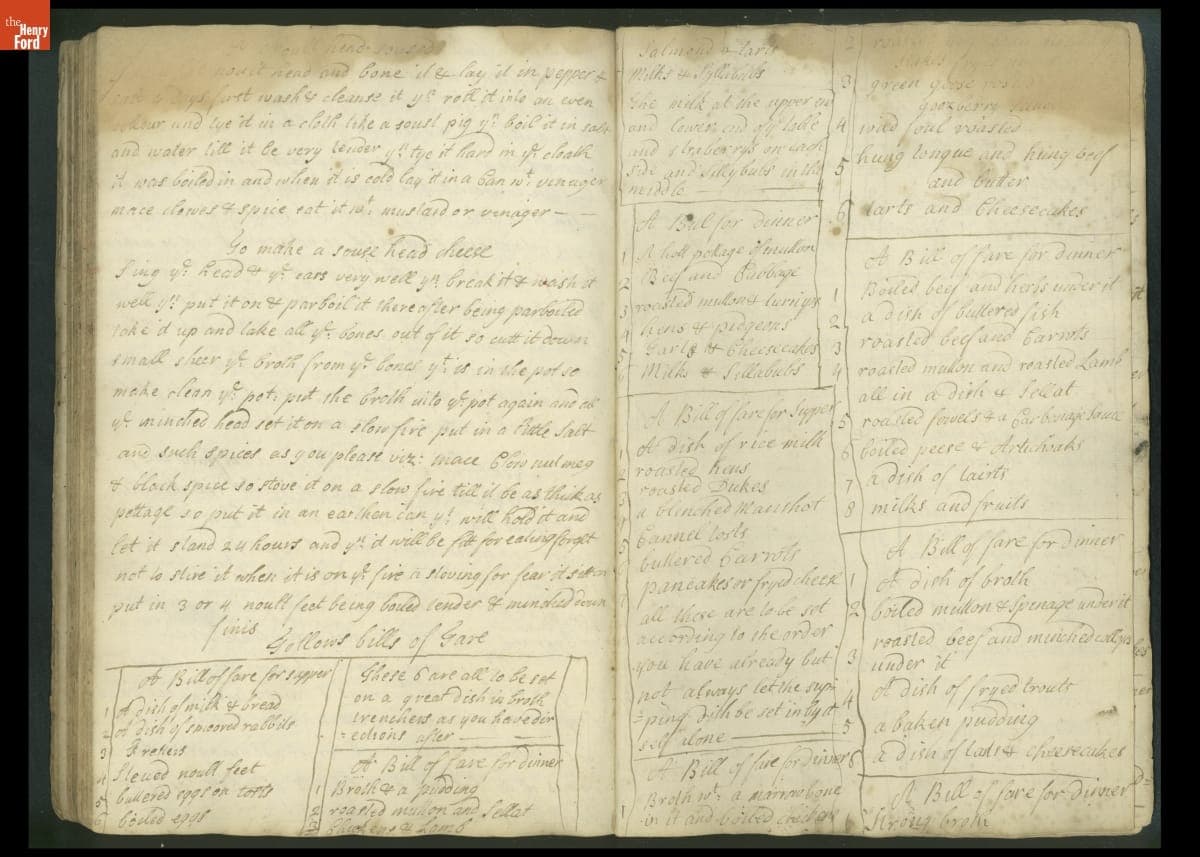 the
Henry
Ford
A noult head soused
noult head and bone it & lay it in pepper &
salt days first wash & cleanse it yn roll it into an even
collour and tye it in a cloth like a soust pig yn boil it in salt
and water till it be very tender yn tye it hard in ye cloath
it was boiled in and when it is cold lay it in a Can wt vinager
mace cloves & spice eat it wt mustard or vinager —
To make a souse head cheese
Sing ye head & ye ears very well yn break it & wash it
well yn put it on & parboil it thereafter being parboiled
take'd up and take all ye bones out of it so cutt it down
small sheer ye broth from ye bones yt is in the pot so
make clean ye pot, put the broth into ye pot again and all
ye minched head set it on a slow fire put in a little salt
and such spices as you please viz: mace Clow nutmeg
& black spice so stove it on a slow fire till it be as thick as
pottage so put it in an earthen can yt will hold it and
let it stand 24 hours and yn it will be fitt for eating forget
not to stire it when it is on ye fire a stoving for fear it sitt on
put in 3 or 4 noult feet being boiled tender & minched down
finis
Follows bills of Fare
A Bill of fare for supper
1 A dish of milk & bread
2 A dish of smoored rabbits
3
4 Stewed noult feet
5 buttered eggs on tosts
6 boiled eggs
These 6 are all to be set
on a great dish in broth
trenchers as you have dir
=ections after
A Bill of fare for dinner
1 Broth & a pudding
2 roasted mutton and Sellat
3 Chickens & Lamb
Salmond & tarts
Milks & Syllabubs
the milk at the upper en
and lower end of ye table
and straberrys on each
side and sillybubs in the
middle
A Bill for dinner
1 A hott pottage of mutton
2 Beef and Cabbage
3 roasted mutton & turnips
4 hens & pidgeons
5 Tarts & Cheesecakes
6 Milks & Sillabubs
A Bill of fare for Supper
1 A dish of rice milk
2 roasted hens
3 roasted Dukes
4 a blinched Manshot
5 Cannel tosts
6 buttered Carrots
7 pancakes or fryed cheese
all these are to be set
according to the order
you have already but
not always let the sup=
=ping dish be set in by it
self alone
A Bill of fare for dinner
1 Broth wt a marrow bone
in it and boiled chickens
2
3 green goose
goozberry sauce
4 wild foul roasted
5 hung tongue and hung beef
and butter
6 tarts and Cheesecakes
A Bill of fare for dinner
1 Boiled beef and herbs under it
2 a dish of buttered fish
3 roasted beef and Carrots
4 roasted mutton and roasted Lamb
all in a dish & Sellat
5 roasted fowels & a Carbonage Sauce
6 boiled peese & Artichoaks
7 a dish of tairts
8 milks and fruits
A Bill of fare for dinner
1 A dish of broth
2 boiled mutton & Spinage under it
3 roasted beef and minched collops
under it
4 A dish of fryed trouts
5 a baken pudding
6 a dish of tarts & cheesecakes
A Bill of fare for dinner
1 Strong broth